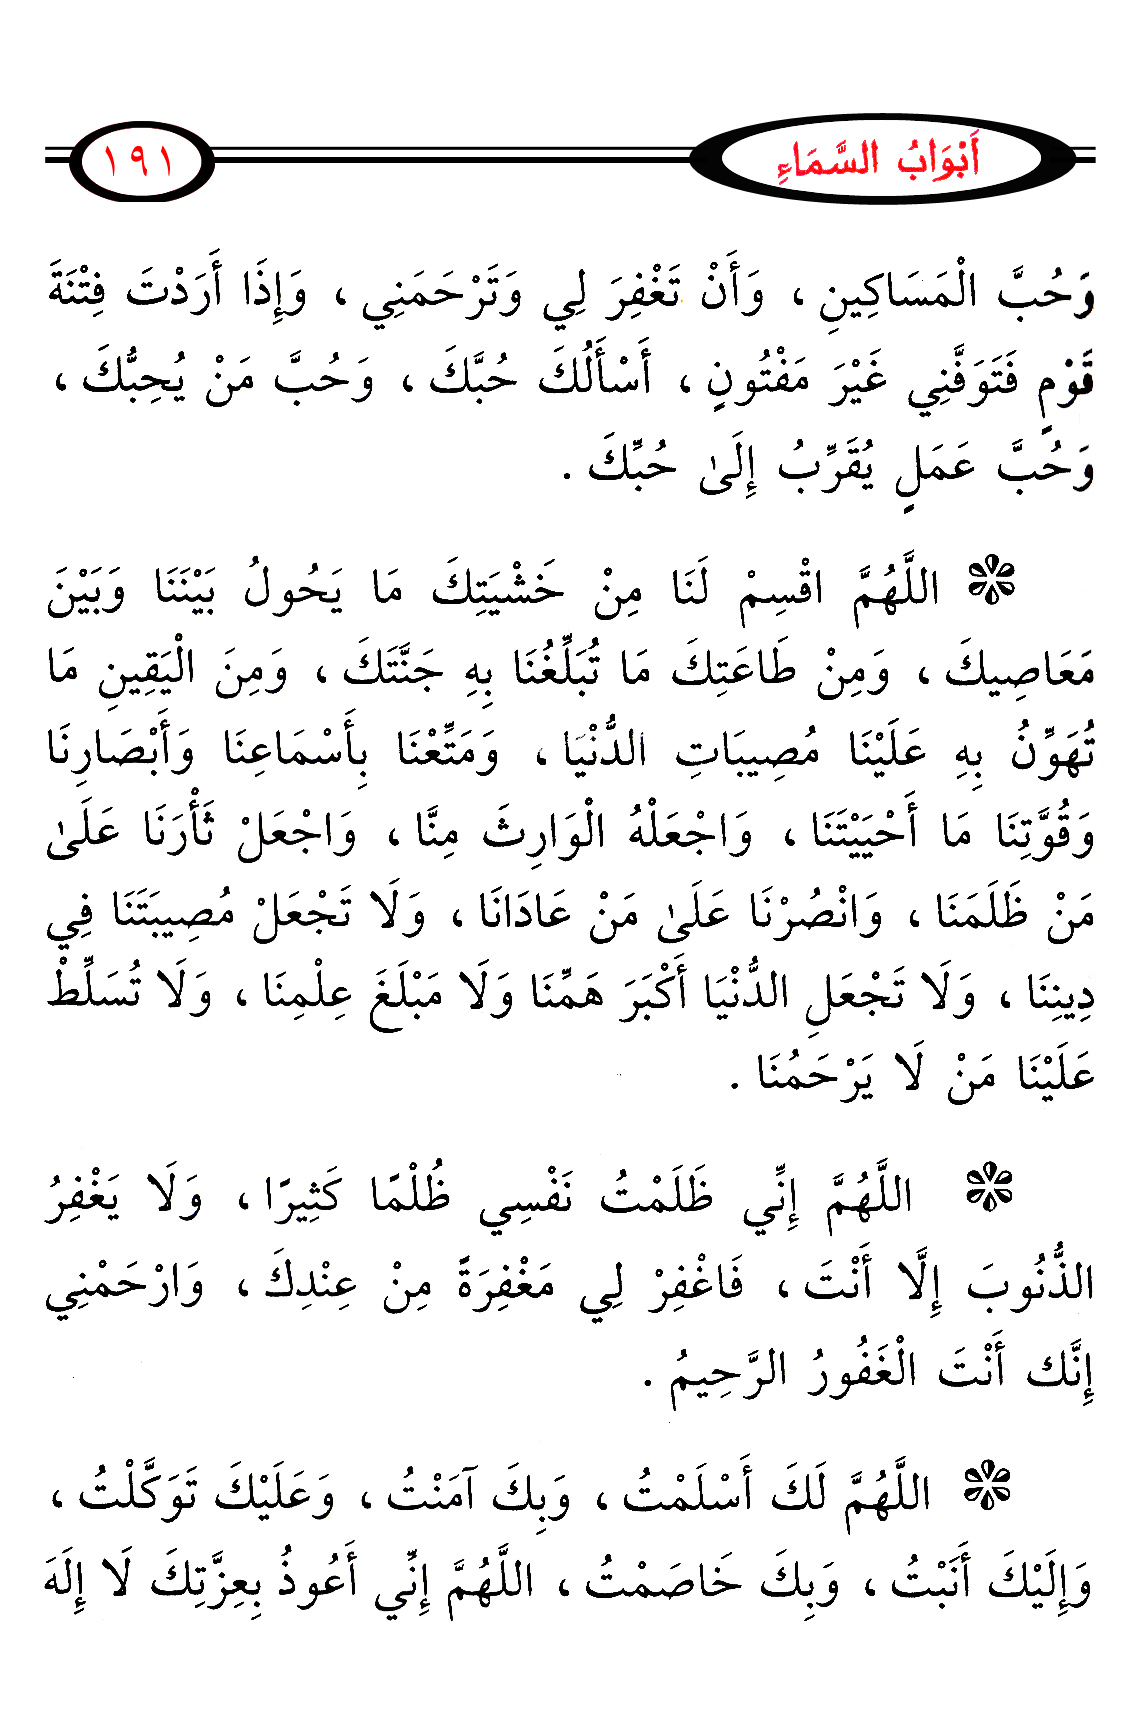 أَبْوَابُ السَّمَاءِ
١٩١
وَحُبَّ الْمَسَاكِينِ ، وَأَنْ تَغْفِرَ لِي وَتَرْحَمَنِي ، وَإِذَا أَرَدْتَ فِتْنَةَ
قَوْمٍ فَتَوَفَّنِي غَيْرَ مَفْتُونٍ ، أَسْأَلُكَ حُبَّكَ ، وَحُبَّ مَنْ يُحِبُّكَ ،
وَحُبَّ عَمَلٍ يُقَرِّبُ إِلَىٰ حُبِّكَ .
❇ اللَّهُمَّ اقْسِمْ لَنَا مِنْ خَشْيَتِكَ مَا يَحُولُ بَيْنَنَا وَبَيْنَ
مَعَاصِيكَ ، وَمِنْ طَاعَتِكَ مَا تُبَلِّغُنَا بِهِ جَنَّتَكَ ، وَمِنَ الْيَقِينِ مَا
تُهَوِّنُ بِهِ عَلَيْنَا مُصِيبَاتِ الدُّنْيَا ، وَمَتِّعْنَا بِأَسْمَاعِنَا وَأَبْصَارِنَا
وَقُوَّتِنَا مَا أَحْيَيْتَنَا ، وَاجْعَلْهُ الْوَارِثَ مِنَّا ، وَاجْعَلْ ثَأْرَنَا عَلَىٰ
مَنْ ظَلَمَنَا ، وَانْصُرْنَا عَلَىٰ مَنْ عَادَانَا ، وَلَا تَجْعَلْ مُصِيبَتَنَا فِي
دِينِنَا ، وَلَا تَجْعَلِ الدُّنْيَا أَكْبَرَ هَمِّنَا وَلَا مَبْلَغَ عِلْمِنَا ، وَلَا تُسَلِّطْ
عَلَيْنَا مَنْ لَا يَرْحَمُنَا .
❇ اللَّهُمَّ إِنِّي ظَلَمْتُ نَفْسِي ظُلْمًا كَثِيرًا ، وَلَا يَغْفِرُ
الذُّنُوبَ إِلَّا أَنْتَ ، فَاغْفِرْ لِي مَغْفِرَةً مِنْ عِنْدِكَ ، وَارْحَمْنِي
إِنَّكَ أَنْتَ الْغَفُورُ الرَّحِيمُ .
❇ اللَّهُمَّ لَكَ أَسْلَمْتُ ، وَبِكَ آمَنْتُ ، وَعَلَيْكَ تَوَكَّلْتُ ،
وَإِلَيْكَ أَنَبْتُ ، وَبِكَ خَاصَمْتُ ، اللَّهُمَّ إِنِّي أَعُوذُ بِعِزَّتِكَ لَا إِلَهَ